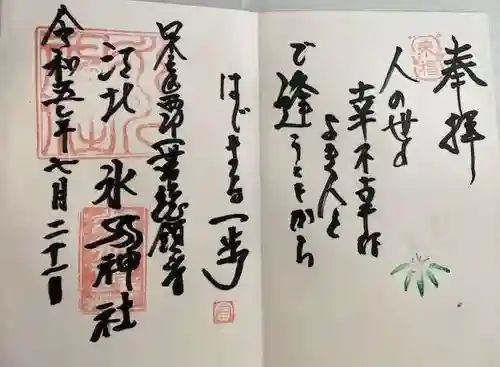 奉拝
人の世の
幸不幸は
よき人と
で逢うことから
はじまる一歩
足立区西部一帯総領守
江北 氷川神社
令和五年七月二十一日